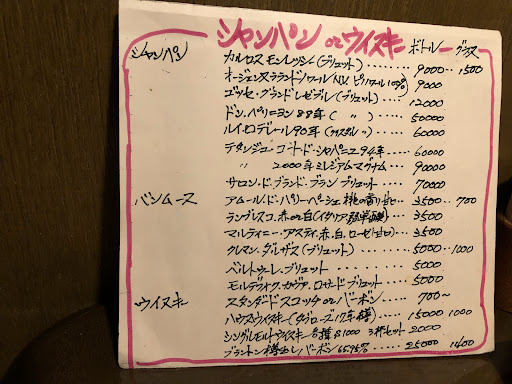 シャンパン or ウイスキー ボトル グラス
シャンパン
カルロス モンレッシー(ブリュット)........ 9000 1500
9000
(ブリュット)... 12000
ドン.ペリニヨン 88年( 〃 )..... 50000
ルイ.ロデレール 90年( 〃 ).... 60000
テタンジュ・コント・ド・シャンパーニュ 94年..... 60000
〃 2000年ミレジアムマグナム... 90000
サロン.ド.ブランド.ブラン ブリュット.... 70000
バンムース アムール.ド.パリーペーシェ 桃の香り甘セ... 3500 700
ランブレスコ.赤 or 白(イタリア 弱甘酸)... 3500
マルティニー.アスティ.赤.白.ローゼ(甘口)... 3500
クレマン.ダルザス(ブリュット)........ 5000 1000
ベルトゥーレ.ブリュット......... 5000
モルデヴォイク.カヴァ.ロザード.ブリュット.... 5000
ウイスキー スタンダードスコッチ or バーボン..... 700~
ハウスウイスキー(ダグローズ12年樽)...... 15000 1000
シングルモルトウイスキー各種 ¥1000 3杯セット 2000
ブラントン樽出しバーボン 65.95%..... 25000 1400